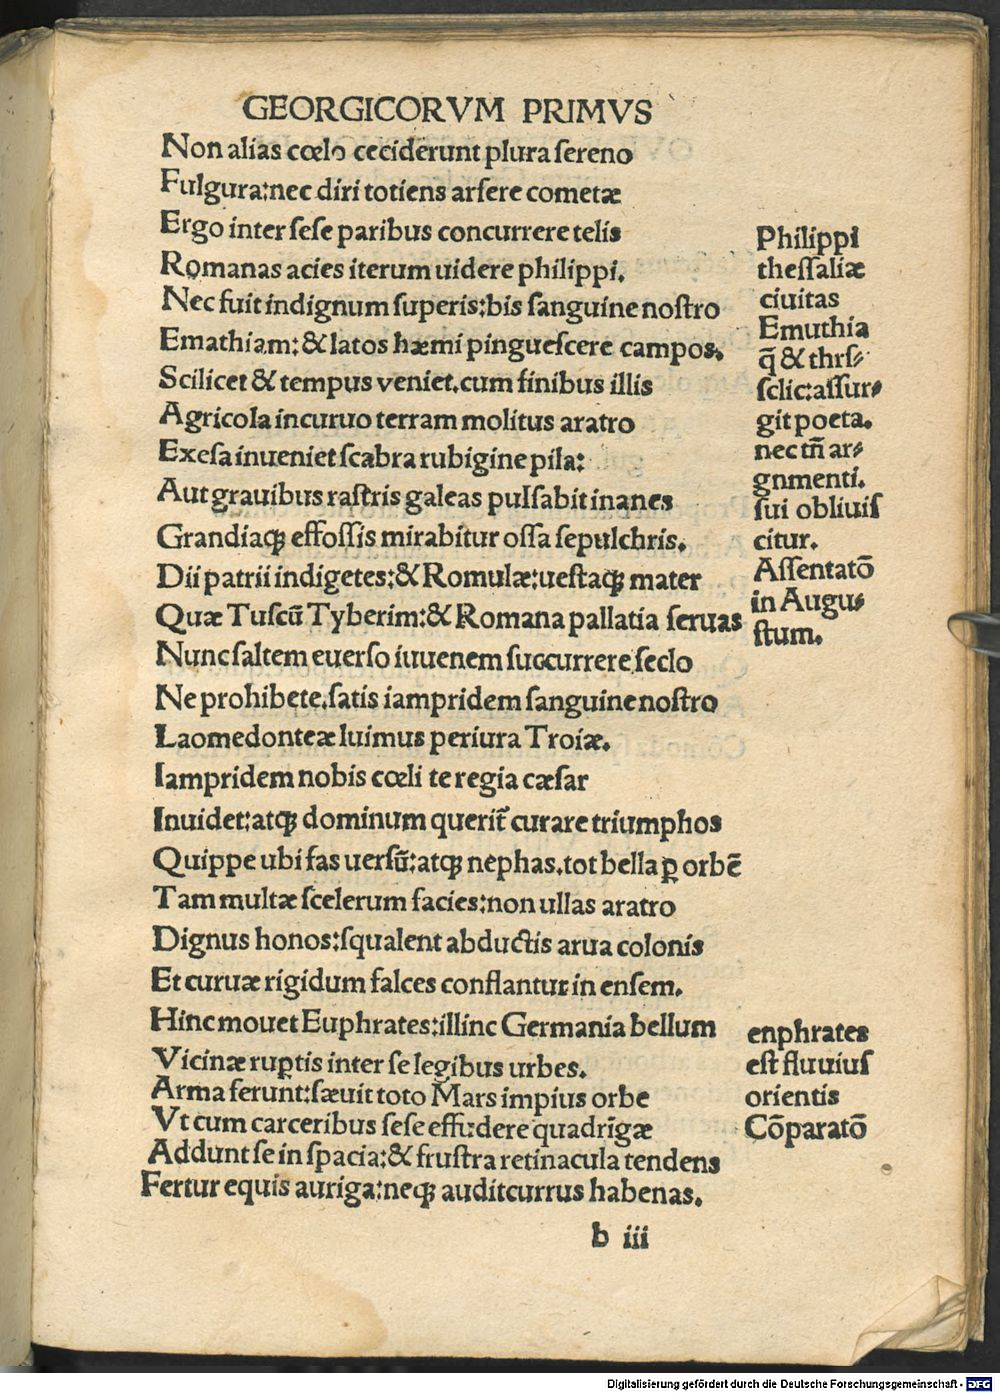 GEORGICORVM PRIMVS
Non alias cœlo ceciderunt plura ſereno
Fulgura:nec diri totiens arſere cometæ
Ergo inter ſeſe paribus concurrere telis
Romanas acies iterum uidere philippi.
Nec fuit indignum ſuperis:bis ſanguine noſtro
Emathiam:& latos hæmi pingueſcere campos.
Scilicet & tempus veniet.cum finibus illis
Agricola incuruo terram molitus aratro
Exeſa inueniet ſcabra rubigine pila:
Aut grauibus raſtris galeas pulſabit inanes
Grandiaqꝫ effoſſis mirabitur oſſa ſepulchris.
Dii patrii indigetes:& Romulæ:ueſtaqꝫ mater
Quæ Tuſcū Tyberim:& Romana pallatia ſeruas
Nunc ſaltem euerſo iuuenem ſuccurrere ſeclo
Ne prohibete.ſatis iampridem ſanguine noſtro
Laomedonteæ luimus periura Troiæ.
Iampridem nobis cœli te regia cæſar
Inuidet:atqꝫ dominum querit̄ curare triumphos
Quippe ubi fas uerſū:atqꝫ nephas.tot bella ꝑ orbē
Tam multæ ſcelerum facies:non ullas aratro
Dignus honos:ſqualent abductis arua colonis
Et curuæ rigidum falces conflantur in enſem.
Hinc mouet Euphrates:illinc Germania bellum
Vicinæ ruptis inter ſe legibus urbes.
Arma ferunt:ſæuit toto Mars impius orbe
Vt cum carceribus ſeſe effudere quadrīgæ
Addunt ſe in ſpacia:& fruſtra retinacula tendens
Fertur equis auriga:neqꝫ audit currus habenas.
b iii
Philippi
theſſaliæ
ciuitas
Emuthia
q̄ & thrſ⸗
ſclic:aſſur⸗
git poeta.
nec tñ ar⸗
gnmenti.
ſui obliuiſ
citur.
Aſſentatō
in Augu⸗
ſtum.
enphrates
eſt fluuiuſ
orientis
Cōparatō
Digitalisierung gefördert durch die Deutsche Forschungsgemeinschaft - DFG